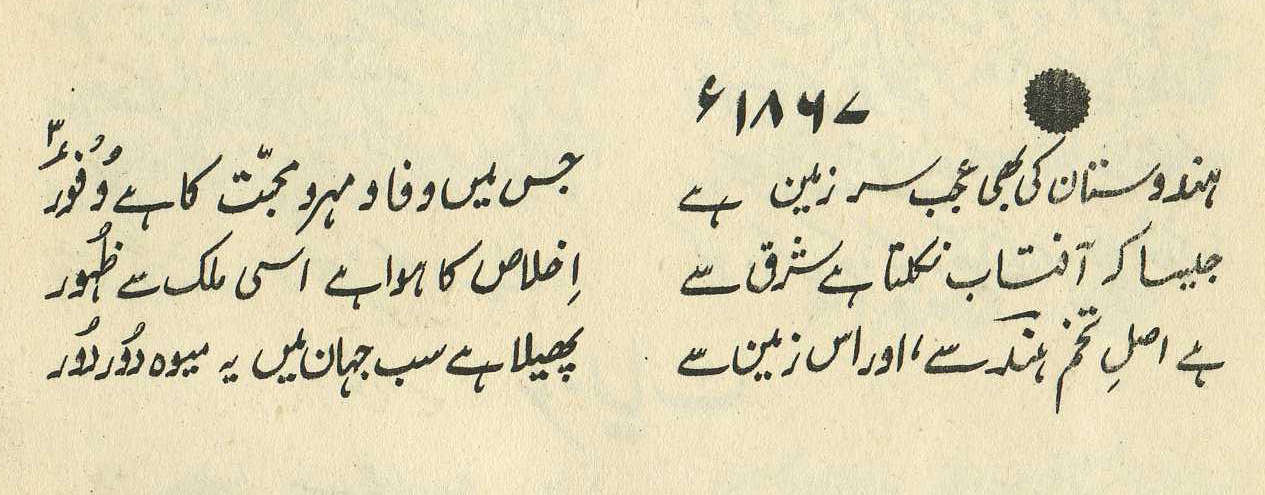 ۱۸۶۷ء
ہندوستان کی بھی عجب سر زمین ہے جس میں وفا و مہر و محبّت کا ہے وُفُور ۳؎
جیسا کہ آفتاب نکلتا ہے شرق سے اِخلاص کا ہوا ہے اسی ملک سے ظُہُور
ہے اصلِ تخم ہند سے، اور اس زمین سے پھیلا ہے سب جہان میں یہ میوہ دُور دُور